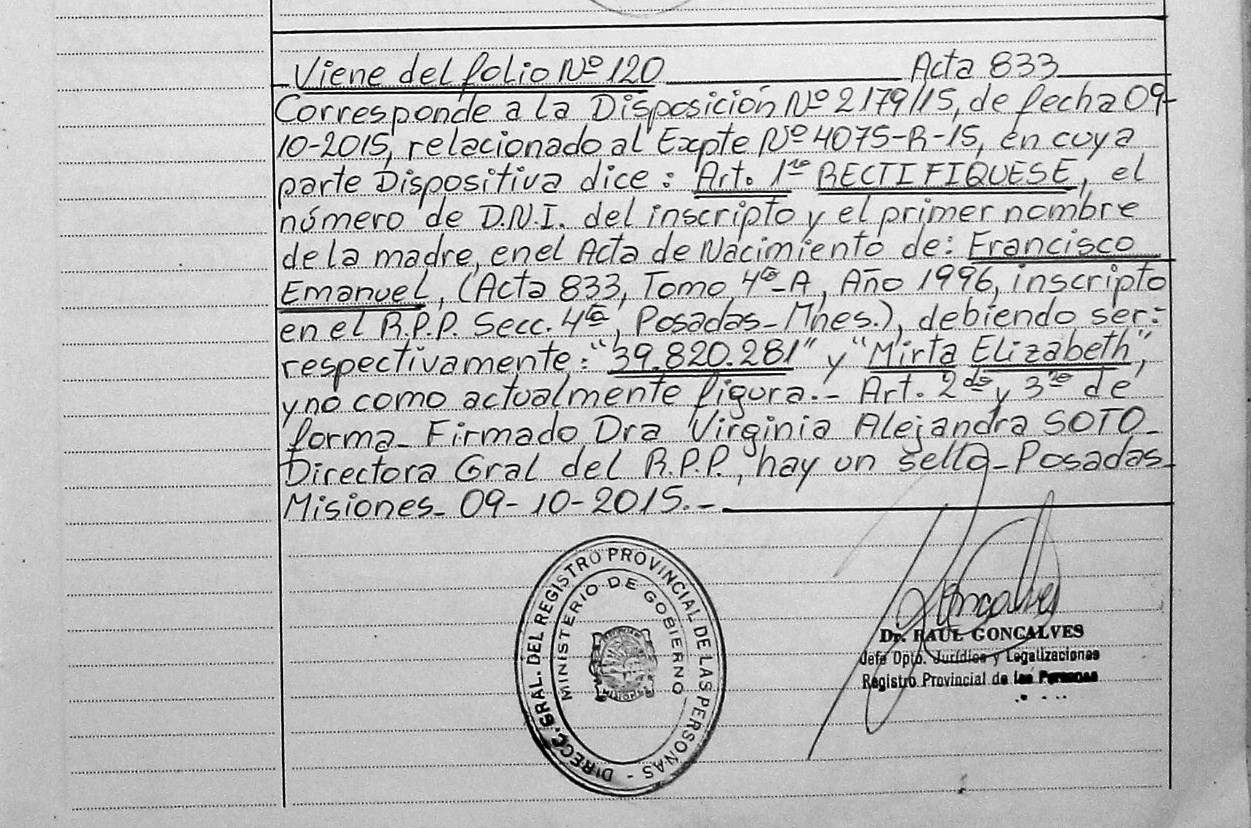 Viene del folio Nº 120 Acta 833
Corresponde a la Disposición Nº 2179/15, de fecha 09-
10-2015, relacionado al Expte Nº 4075-R-15, en cuya
parte Dispositiva dice: Art. 1ro RECTIFIQUESE, el
número de D.N.I. del inscripto y el primer nombre
de la madre, en el Acta de Nacimiento de: Francisco
Emanuel, (Acta 833, Tomo 4to-A, Año 1996, inscripto
en el R.P.P. Secc. 4ta, Posadas-Mnes.), debiendo ser:
respectivamente: "39.820.281" y "Mirta Elizabeth",
y no como actualmente figura.- Art. 2do y 3ro de
forma- Firmado Dra Virginia Alejandra SOTO-
Directora Gral del R.P.P., hay un sello- Posadas-
Misiones- 09-10-2015.-
DIRECC. GRAL. DEL REGISTRO PROVINCIAL DE LAS PERSONAS -
MINISTERIO DE GOBIERNO
Goncalves
Dr. RAUL GONCALVES
Jefe Dpto. Jurídico y Legalizaciones
Registro Provincial de las Personas